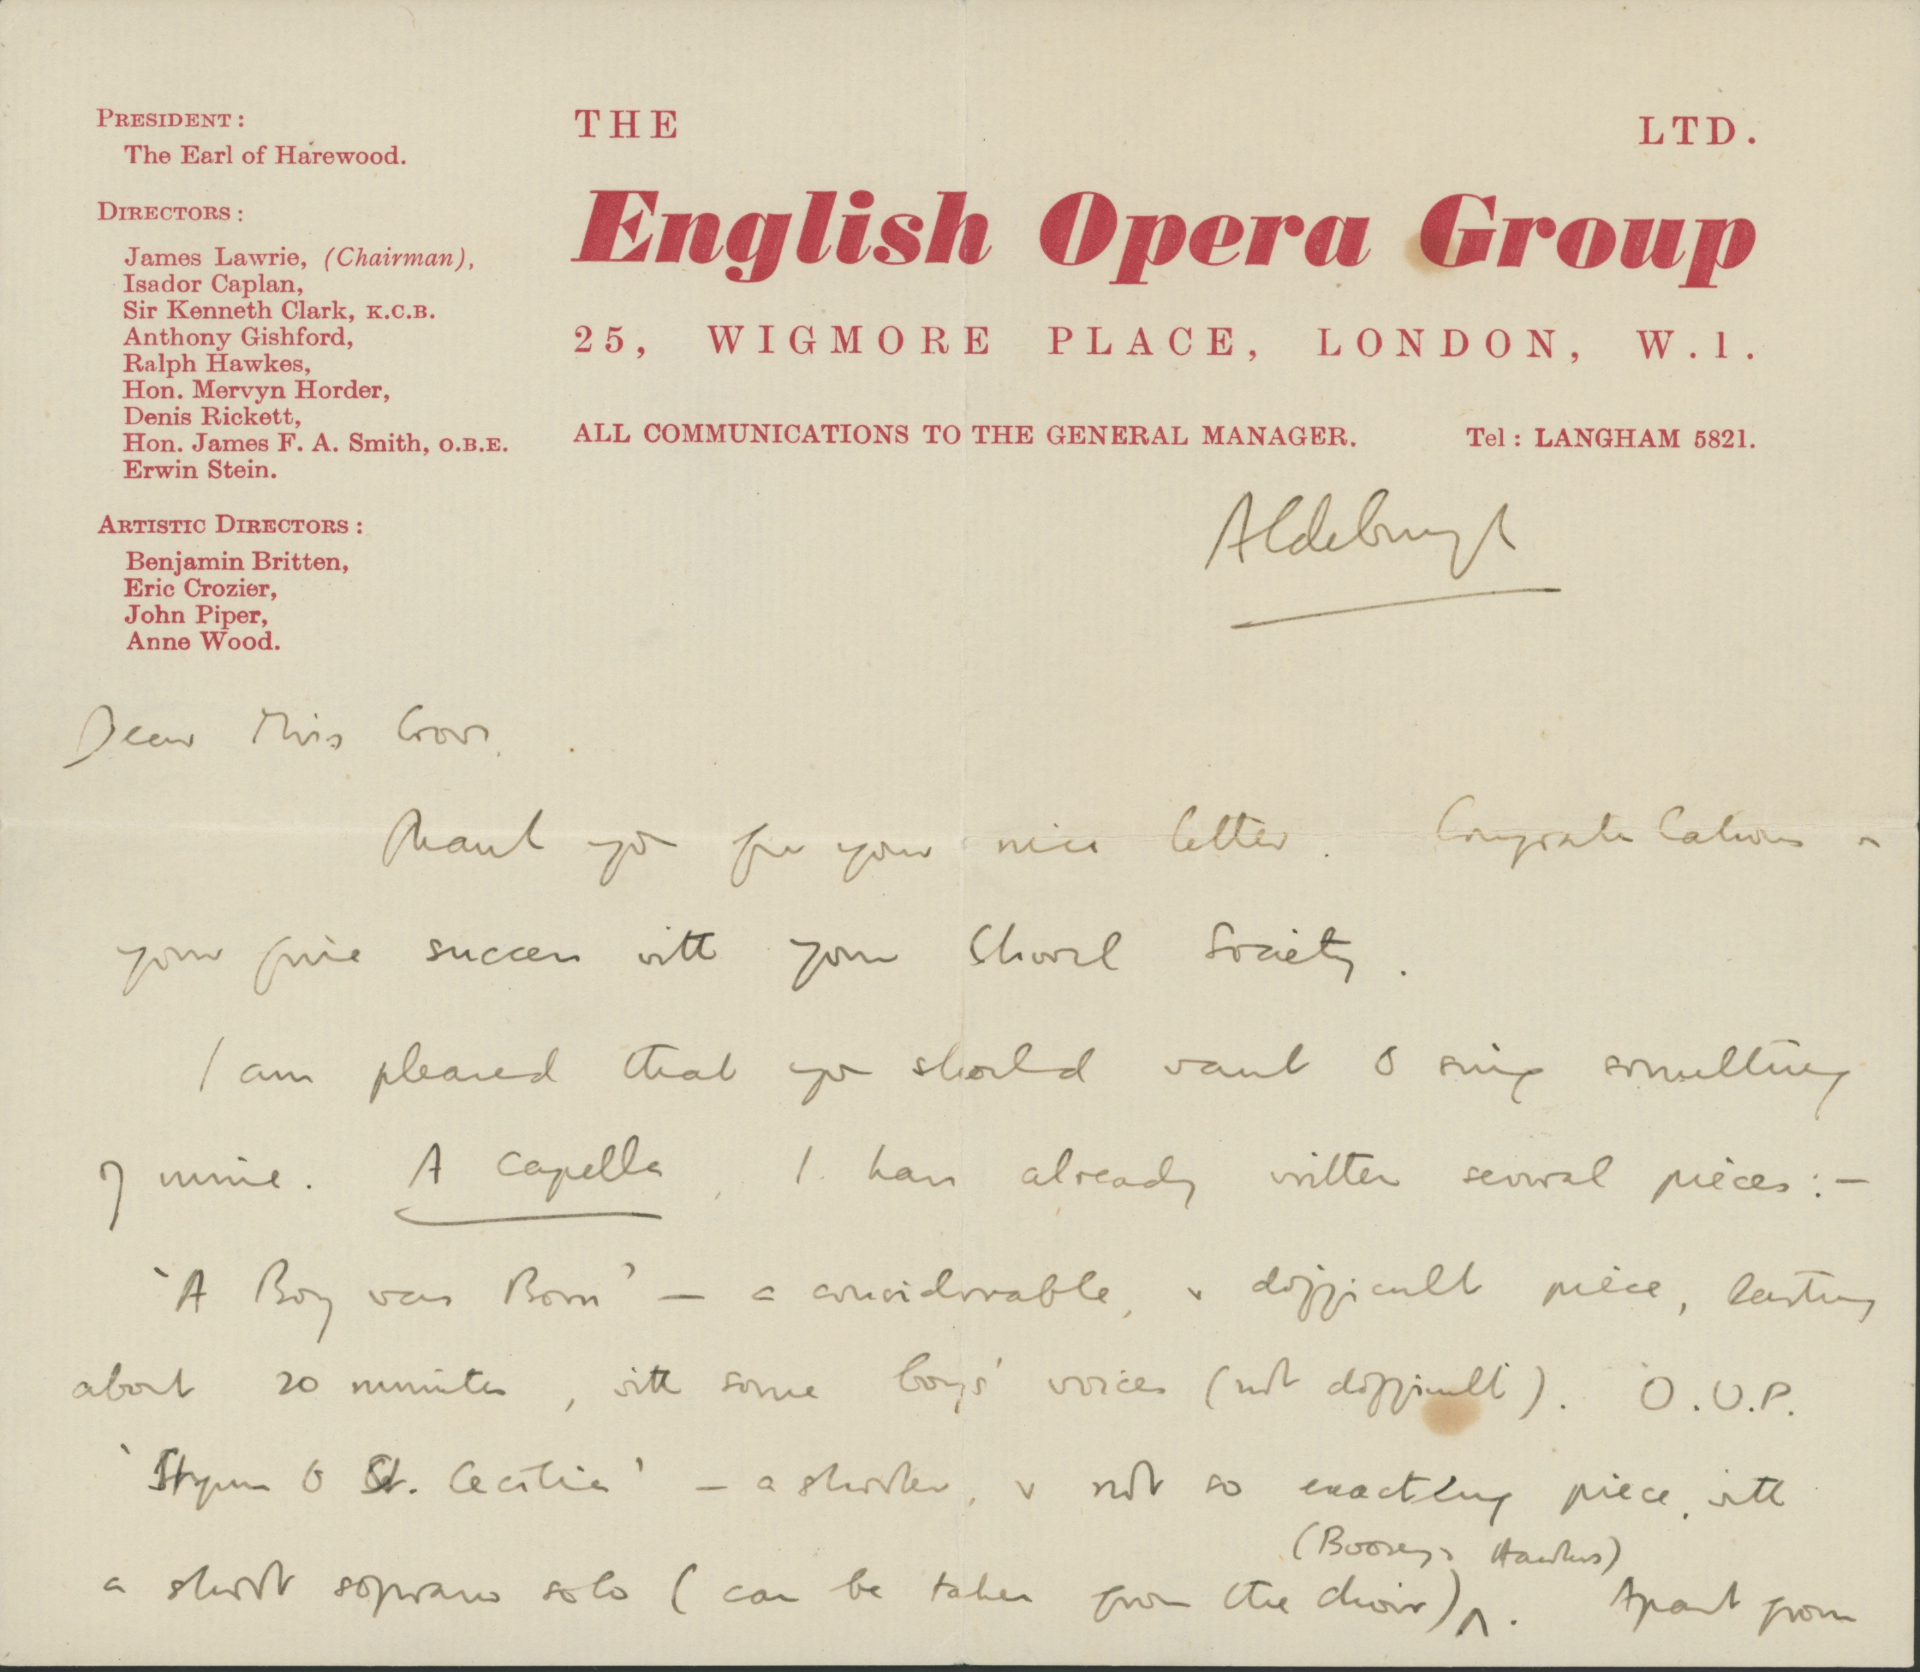 PRESIDENT:
The Earl of Harewood.
DIRECTORS:
James Lawrie, (Chairman),
Isador Caplan,
Sir Kenneth Clark, K.C.B.
Anthony Gishford,
Ralph Hawkes,
Hon. Mervyn Horder,
Denis Rickett,
Hon. James F. A. Smith, O.B.E.
Erwin Stein.
ARTISTIC DIRECTORS:
Benjamin Britten,
Eric Crozier,
John Piper,
Anne Wood.
THE LTD.
English Opera Group
25, WIGMORE PLACE, LONDON, W.1.
ALL COMMUNICATIONS TO THE GENERAL MANAGER. Tel: LANGHAM 5821.
Aldeburgh
Dear Miss
Thank you for your nice letter. Congratulations
your fine success with your Choral Society.
I am pleased that you should want to sing something
of mine. A Capella, I have already written several pieces:—
'A Boy was Born' — a considerable, & difficult piece, lasting
about 20 minutes, with some boys' voices (not difficult). O.U.P.
'Hymn to St. Cecilia' — a shorter, & not so exacting piece, with
(Boosey & Hawkes)
a short soprano solo (can be taken from the choir)^. Apart from